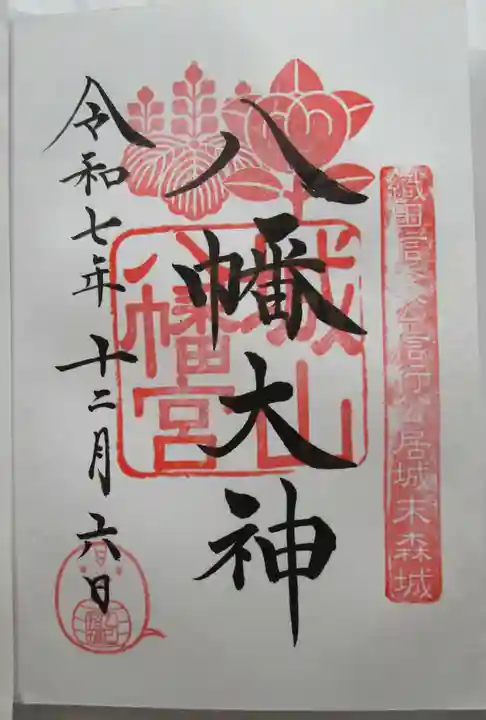 織田信秀公信行公居城末森城
八幡大神
城山
八幡宮
令和七年十二月六日